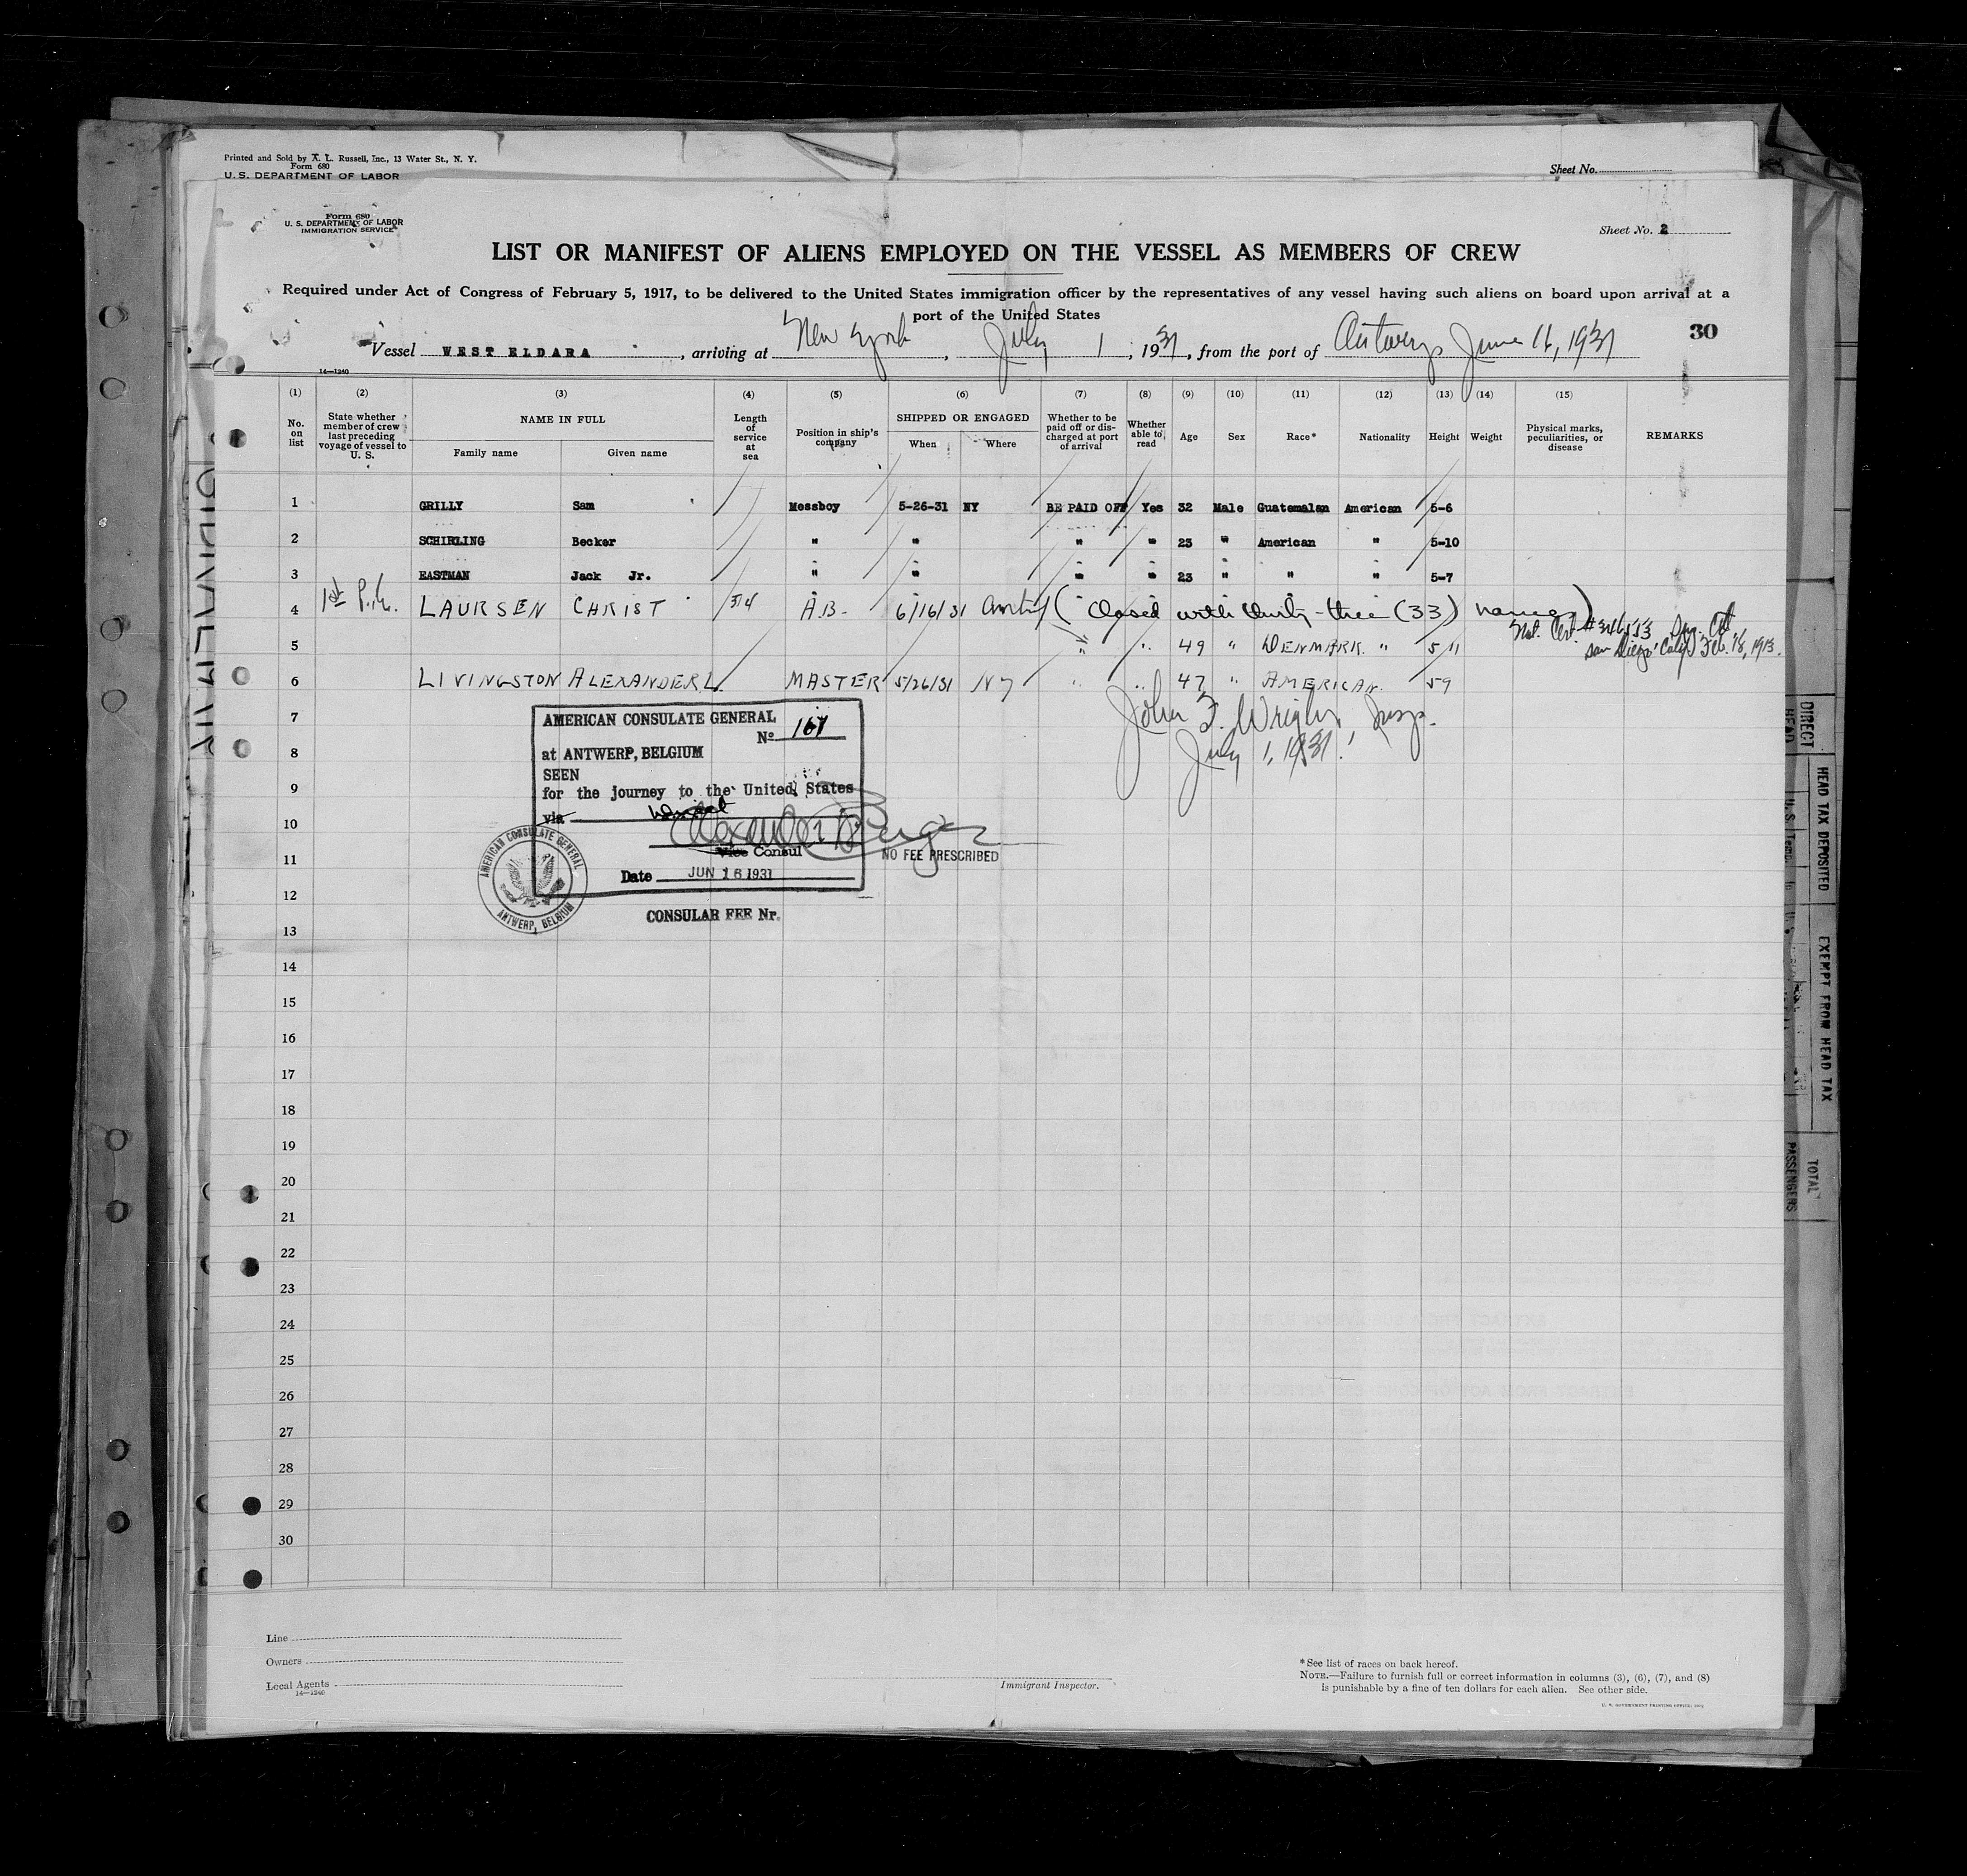 Printed and Sold by A. L. Russell, Inc., 13 Water St., N. Y.
Form 680
U. S. DEPARTMENT OF LABOR
Sheet No.
Form 680
U. S. DEPARTMENT OF LABOR
IMMIGRATION SERVICE
Sheet No. 2
LIST OR MANIFEST OF ALIENS EMPLOYED ON THE VESSEL AS MEMBERS OF CREW
Required under Act of Congress of February 5, 1917, to be delivered to the United States immigration officer by the representatives of any vessel having such aliens on board upon arrival at a
port of the United States
30
Vessel WEST ELDARA, arriving at New York, July 1, 1931, from the port of Antwerp June 16, 1931
14—1240
(1) (2) (3) (4) (5) (6) (7) (8) (9) (10) (11) (12) (13) (14) (15)
No. on list
State whether member of crew last preceding voyage of vessel to U. S.
NAME IN FULL
Family name
Given name
Length of service at sea
Position in ship's company
SHIPPED OR ENGAGED
When
Where
Whether to be paid off or discharged at port of arrival
Whether able to read
Age
Sex
Race*
Nationality
Height
Weight
Physical marks, peculiarities, or disease
REMARKS
1 GRILLY Sam Messboy 5-26-31 NY BE PAID OFF Yes 32 Male Guatemalan American 5-6
2 SCHIRLING Becker " " " " 23 " American " 5-10
3 EASTMAN Jack Jr. " " " " 23 " " " 5-7
4 LAURSEN CHRIST 34 A.B. 6/16/31 (Closed with thirty-three (33) names)
Nat. Cert.
San Diego, Calif Feb. 18, 1913.
5 " " 49 " DENMARK " 5 11
6 LIVINGSTON ALEXANDER L. MASTER 5/26/31 NY " " 47 " AMERICAN. 5 9
John F. Wright, Insp.
July 1, 1931.
7
8
9
10
11
12
13
14
15
16
17
18
19
20
21
22
23
24
25
26
27
28
29
30
AMERICAN CONSULATE GENERAL
No 167
at ANTWERP, BELGIUM
SEEN
for the journey to the United States
via
Vice Consul
NO FEE PRESCRIBED
Date JUN 16 1931
CONSULAR FEE Nr.
AMERICAN CONSULATE GENERAL
ANTWERP, BELGIUM
DIRECT
HEAD
HEAD TAX DEPOSITED
EXEMPT FROM HEAD TAX
TOTAL
PASSENGERS
Line
Owners
Local Agents
14—1240
Immigrant Inspector.
*See list of races on back hereof.
NOTE.—Failure to furnish full or correct information in columns (3), (6), (7), and (8)
is punishable by a fine of ten dollars for each alien. See other side.